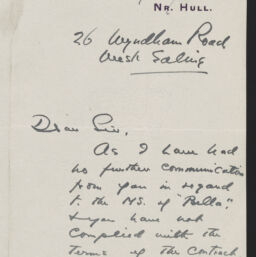 NR. HULL.
26 Wyndham Road
West Ealing
Dear Sir,
As I have had
no further communication
from you in regard
to the MS. of "Bella",
& you have not
complied with the
terms of the contract